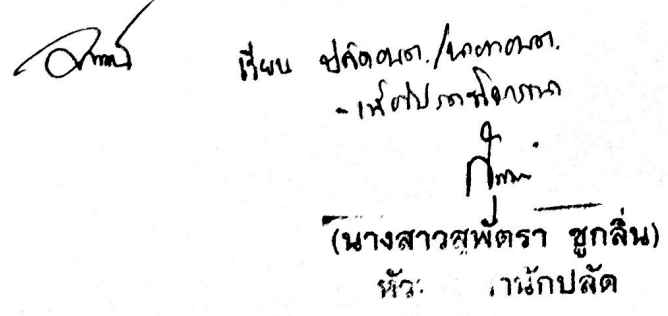 เรียน ปลัดอบต./นายกอบต.
- เพื่อโปรดพิจารณา
(นางสาวสุพัตรา ชูกลิ่น)
หัว านักปลัด